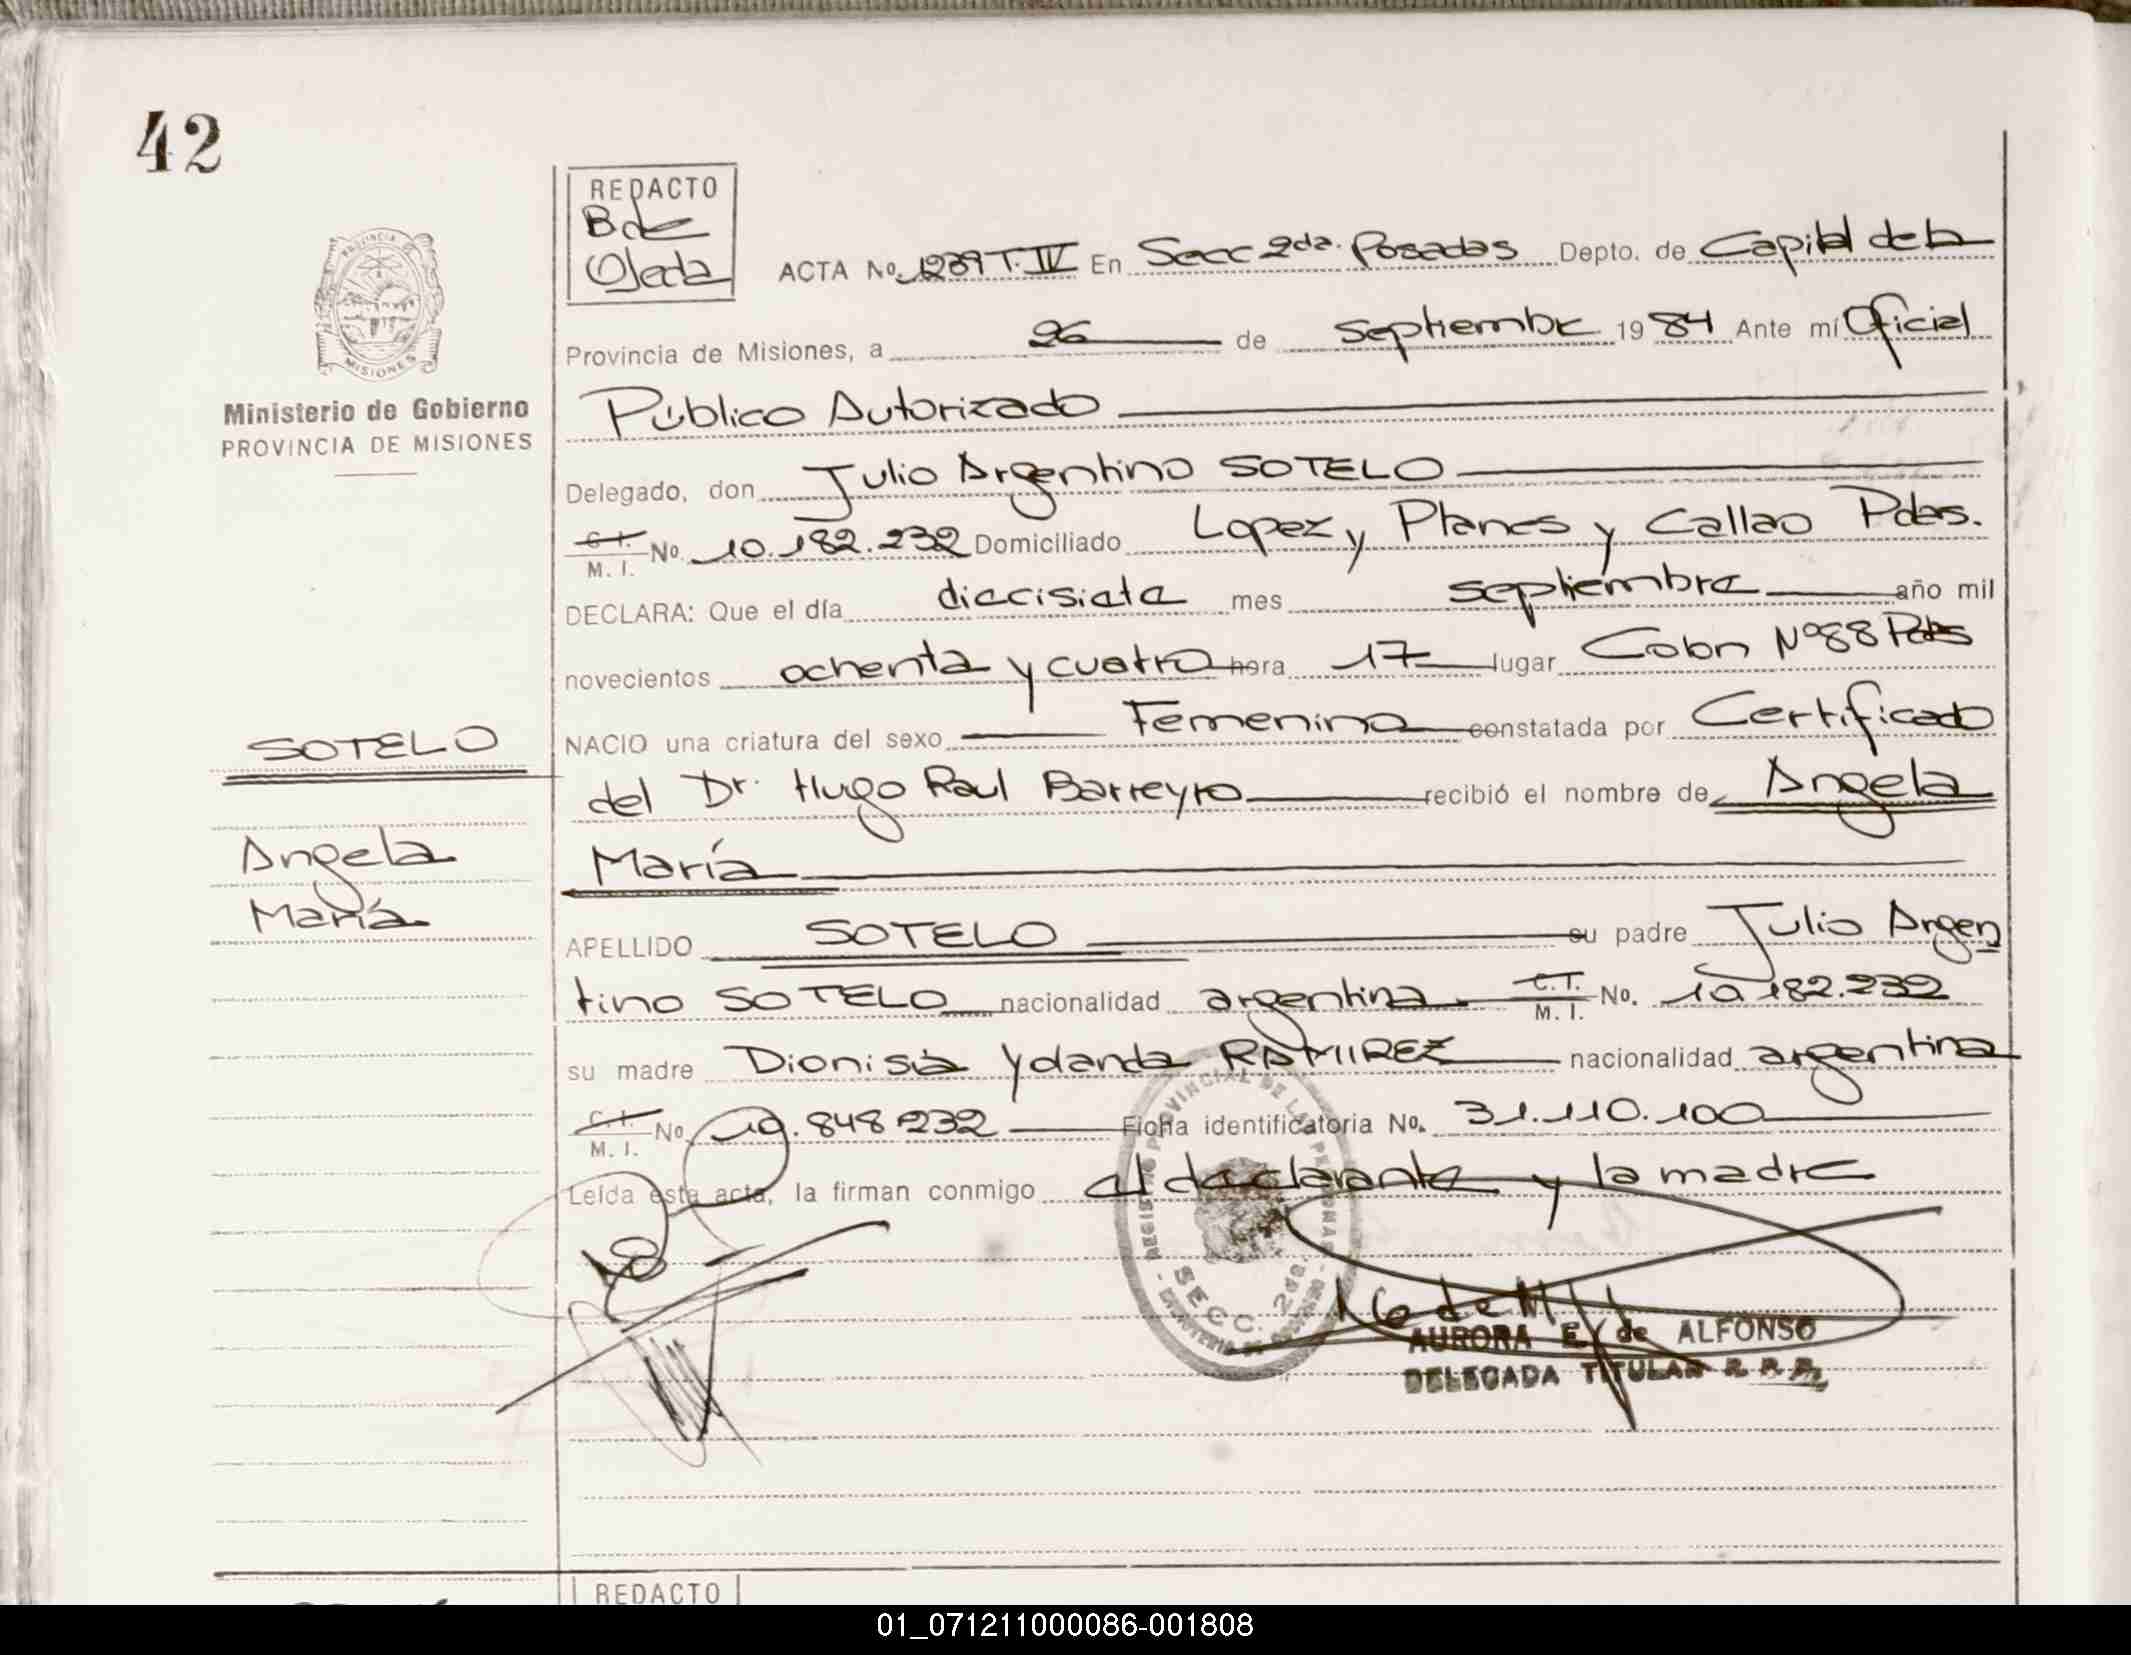 42
REDACTO
B de
Ojeda
ACTA No. 1239 T. IV En Secc 2da. Posadas Depto. de Capital de la
PROVINCIA
MISIONES
Provincia de Misiones, a 26 de septiembre 1984 Ante mí Oficial
Ministerio de Gobierno
PROVINCIA DE MISIONES
Público Autorizado
Delegado, don Julio Argentino SOTELO
C.I. M. I. No. 10.182.232 Domiciliado Lopez y Planes y Callao Pdas.
DECLARA: Que el día diecisiete mes septiembre año mil
novecientos ochenta y cuatro hora 17 lugar Colon Nº 88 Pdas
NACIO una criatura del sexo Femenino constatada por Certificado
SOTELO
del Dr. Hugo Raul Barreyro recibió el nombre de Angela
Angela
María
María
APELLIDO SOTELO su padre Julio Argen
tino SOTELO nacionalidad argentina C.I. M. I. No. 10.182.232
su madre Dionisia Yolanda RAMIREZ nacionalidad argentina
C.I. M. I. No. 19.848.232 Ficha identificatoria No. 31.110.100
Leída esta acta, la firman conmigo el declarante y la madre
REGISTRO PROVINCIAL DE LAS PERSONAS
SECC. 2da.
AURORA E. de ALFONSO
DELEGADA TITULAR R. P. P.
REDACTO
01_071211000086-001808